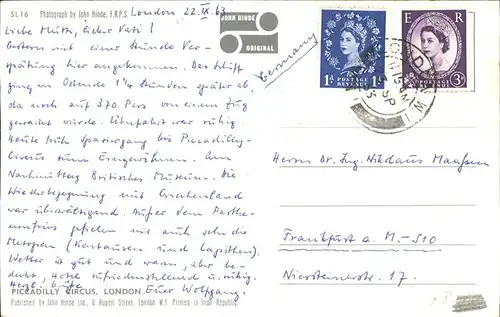 SL16 Photograph by John Hinde, F.R.P.S.
London 22.IX.63
Liebe Mutti, lieber Vati!
Gestern mit einer Stunde Ver-
spätung hier angekommen. Das Schiff
ging in Ostende 1¼ Stunden später ab,
da noch auf 370 Pers von einem Zug
gewartet wurde. Überfahrt war ruhig.
Heute früh Spaziergang bis Piccadilly-
Circus zum Eingewöhnen. Am
Nachmittag Britisches Museum. Die
Wiederbegegnung mit Griechenland
war überwältigend. Außer dem Parthe-
nonfries gefielen mir auch sehr die
Metopen (Kentauren und Lapithen).
Wetter ist gut und warm, aber be-
deckt, Hotel zufriedenstellend u. ruhig.
Herzl. Grüße
Euer Wolfgang.
PICCADILLY CIRCUS, LONDON
Published by John Hinde Ltd., 6 Rupert Street, London W.1 Printed in Irish Republic
JOHN HINDE
ORIGINAL
Germany
1D POSTAGE REVENUE 1D
E R
3D POSTAGE REVENUE 3D
Herrn Dr. Ing. Nikolaus Maaßen
Frankfurt a. M.-S10
Niersteinerstr. 17.